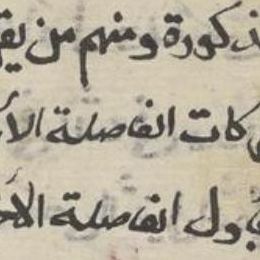 ذكورة ومنهم من يقر
كات الفاصلة الا
ول الفاصلة الا